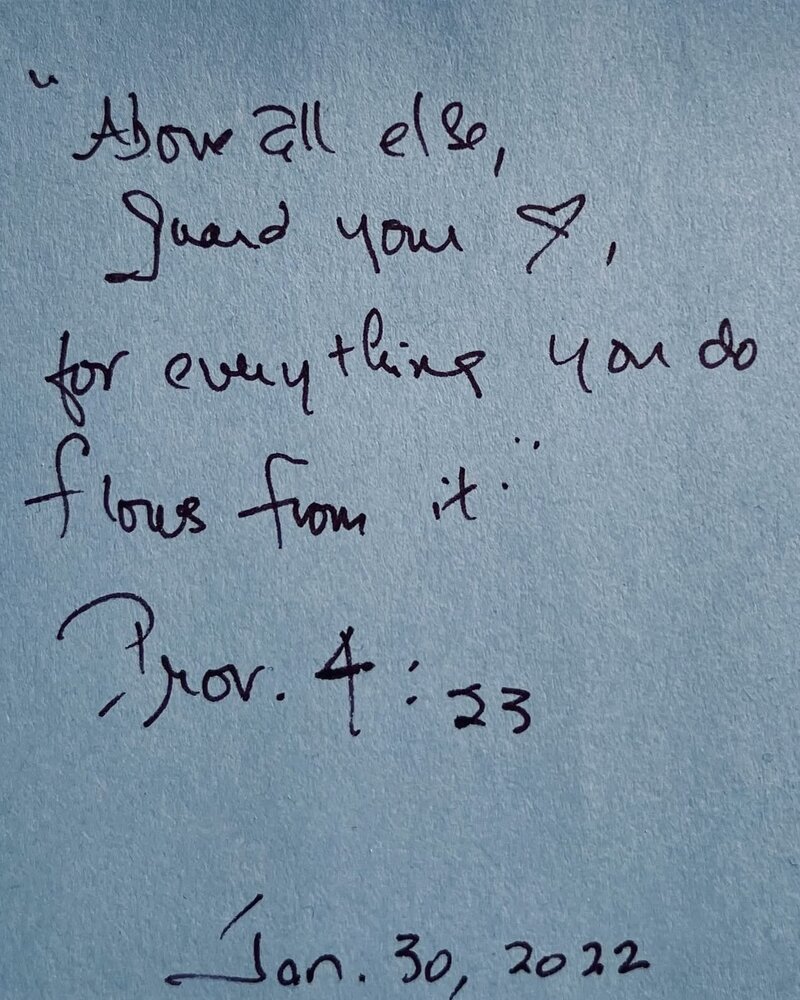 "Above all else,
guard your ♡,
for everything you do
flows from it."
Prov. 4:23
Jan. 30, 2022